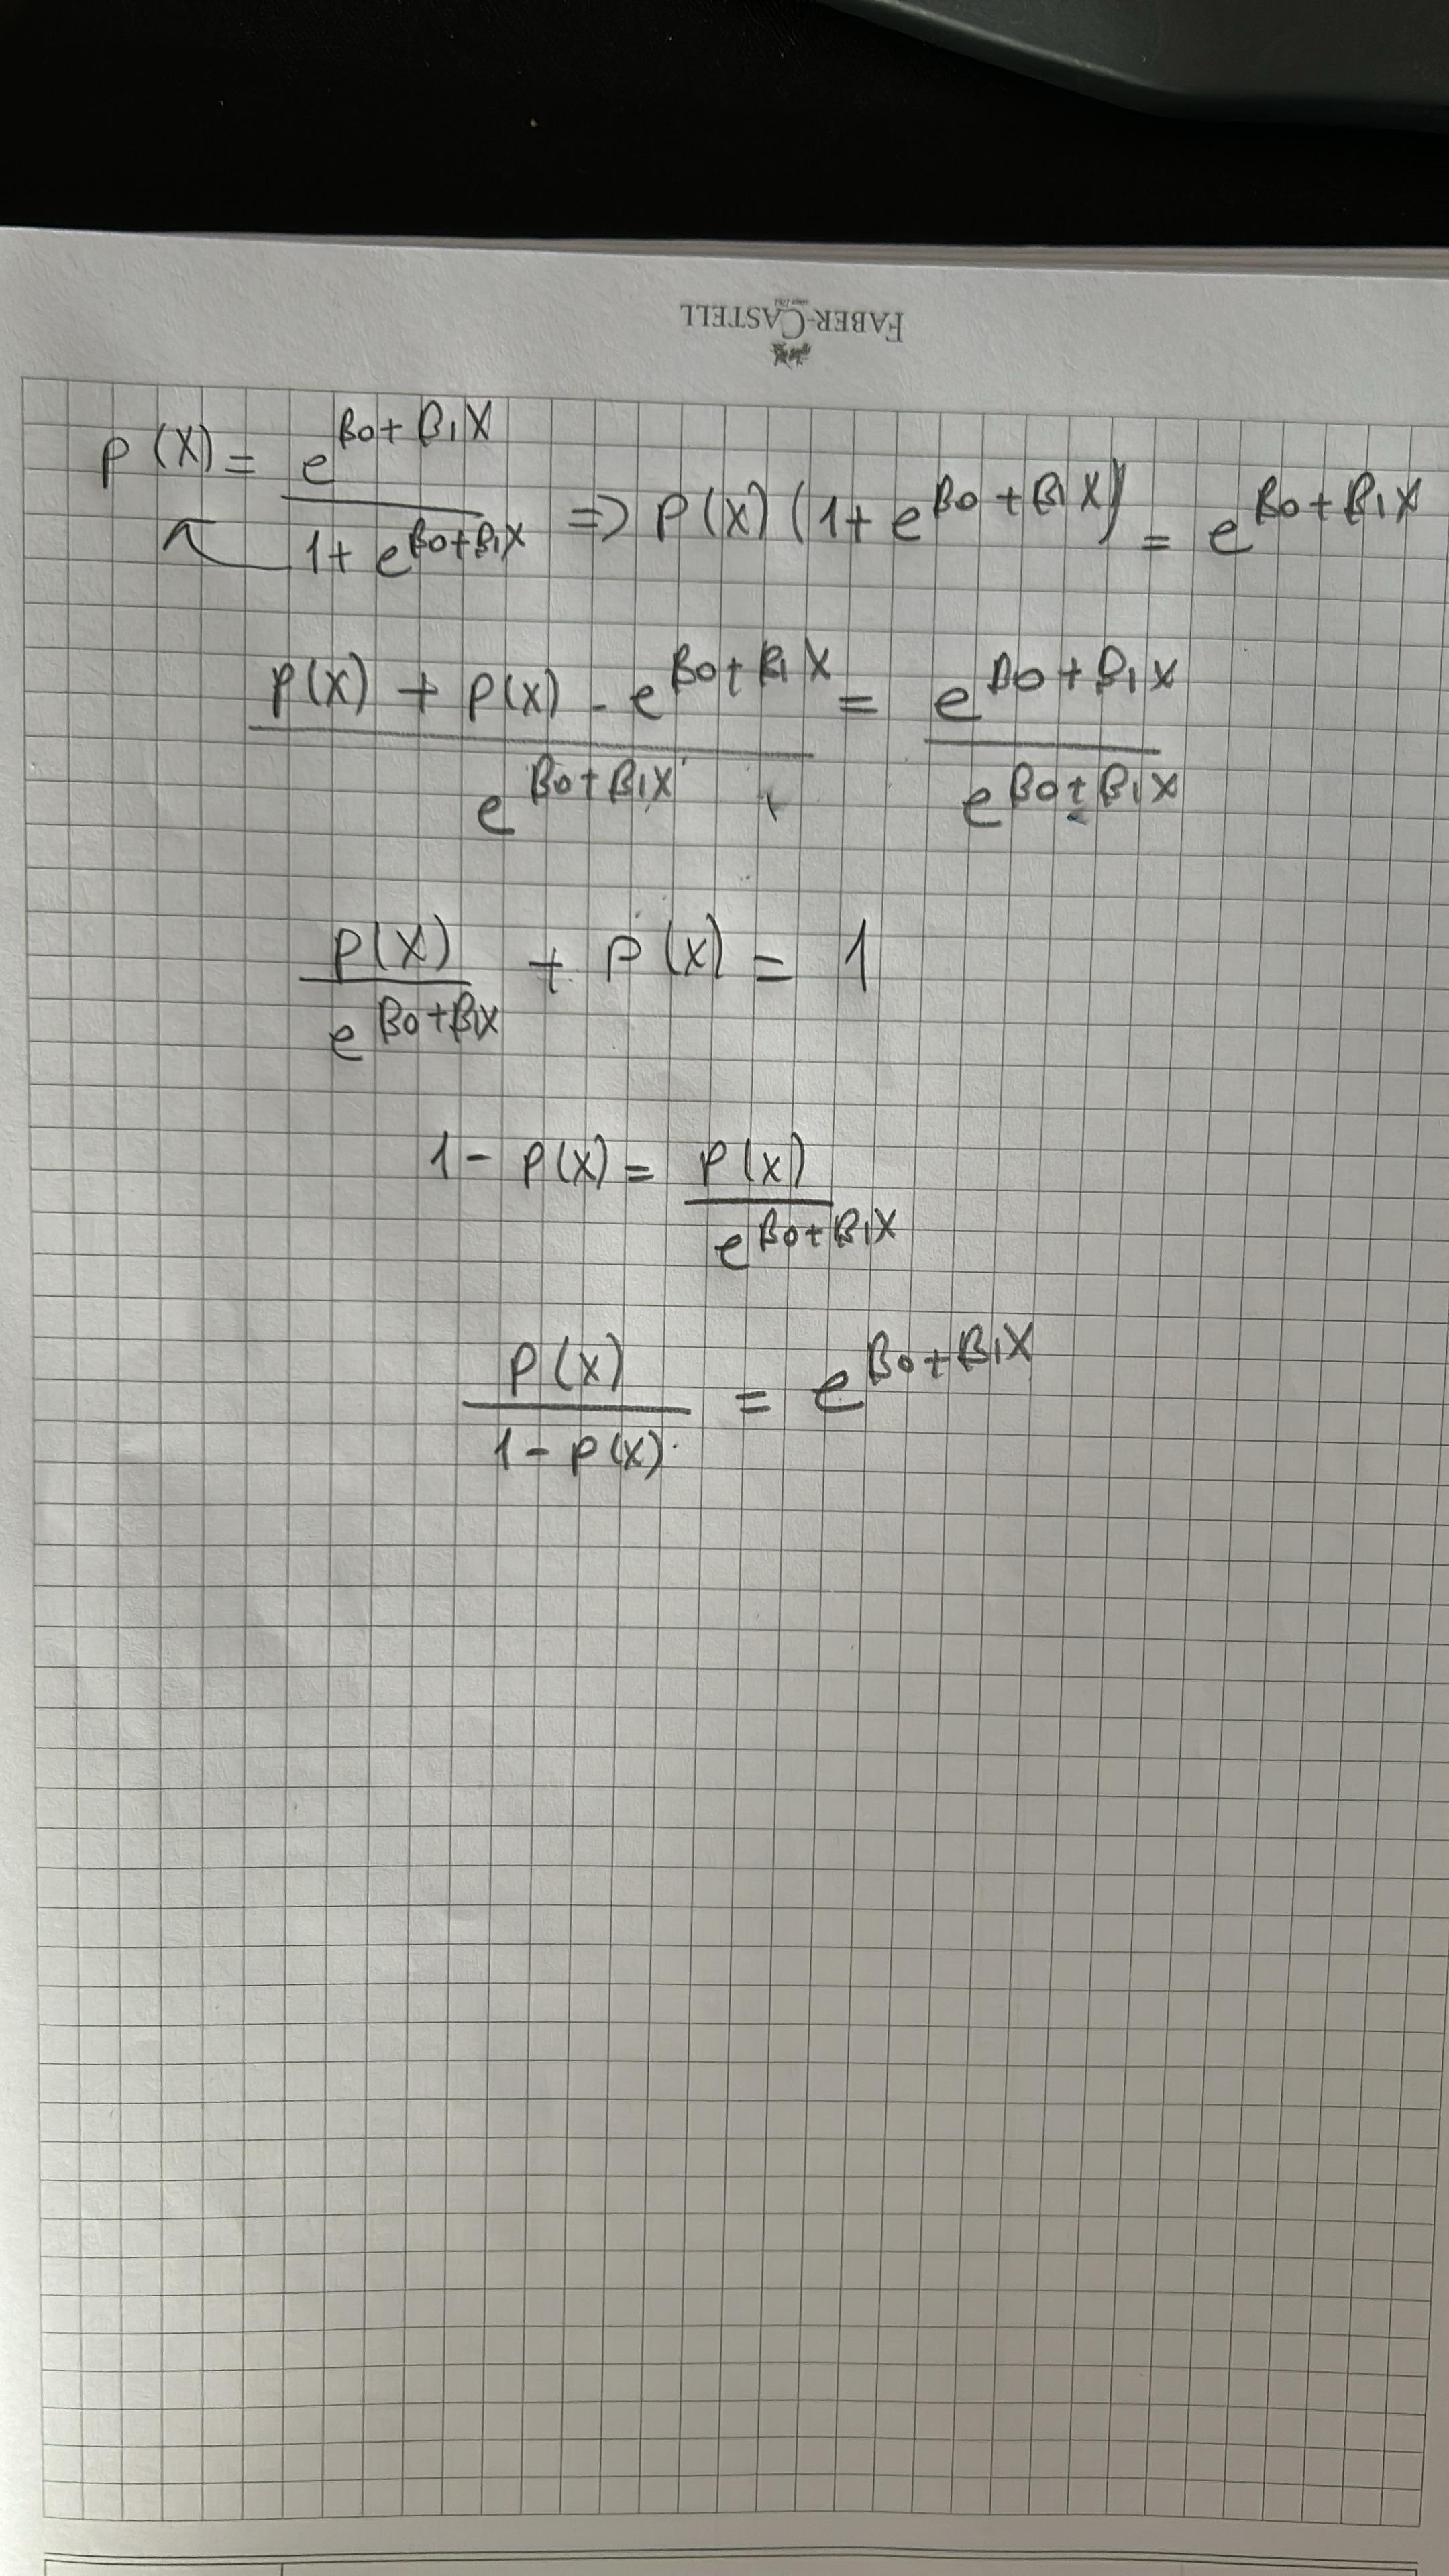 FABER-CASTELL
since 1761
p(X) = e^{β0+β1X} / 1+e^{β0+β1X} => p(X)(1+e^{β0+β1X}) = e^{β0+β1X}
p(X) + p(X) · e^{β0+β1X} / e^{β0+β1X} = e^{β0+β1X} / e^{β0+β1X}
p(X) / e^{β0+β1X} + p(X) = 1
1 - p(X) = p(X) / e^{β0+β1X}
p(X) / 1-p(X) = e^{β0+β1X}